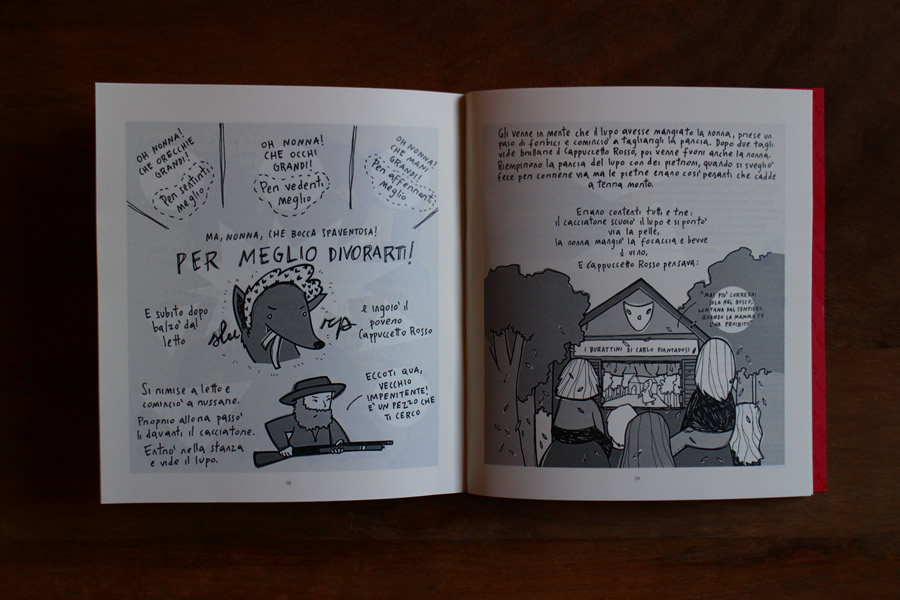 OH NONNA!
CHE ORECCHIE
GRANDI!
Per sentirti
meglio
OH NONNA!
CHE OCCHI
GRANDI!
Per vederti
meglio
OH NONNA!
CHE MANI
GRANDI!
Per afferrarti
meglio
MA, NONNA, CHE BOCCA SPAVENTOSA!
PER MEGLIO DIVORARTI!
E subito dopo
balzo' dal
letto
slu rp
e ingoio' il
povero
Cappuccetto Rosso
Si rimise a letto e
comincio' a russare.
Proprio allora passo'
li davanti il cacciatore.
Entro' nella stanza
e vide il lupo.
ECCOTI QUA,
VECCHIO
IMPENITENTE!
E' UN PEZZO CHE
TI CERCO
Gli venne in mente che il lupo avesse mangiato la nonna, prese un
paio di forbici e comincio' a tagliargli la pancia. Dopo due tagli
vide brillare il Cappuccetto Rosso, poi venne fuori anche la nonna.
Riempirono la pancia del lupo con dei pietroni, quando si sveglio'
fece per correre via ma le pietre erano cosi' pesanti che cadde
a terra morto.
Erano contenti tutti e tre:
il cacciatore scuoio' il lupo e si porto'
via la pelle,
la nonna mangio' la focaccia e bevve
il vino,
E Cappuccetto Rosso pensava:
"MAI PIU' CORRERAI
SOLA NEL BOSCO,
LONTANA DAL SENTIERO,
QUANDO LA MAMMA TE
L'HA PROIBITO"
I BURATTINI DI CARLO PIANTADOSI
59